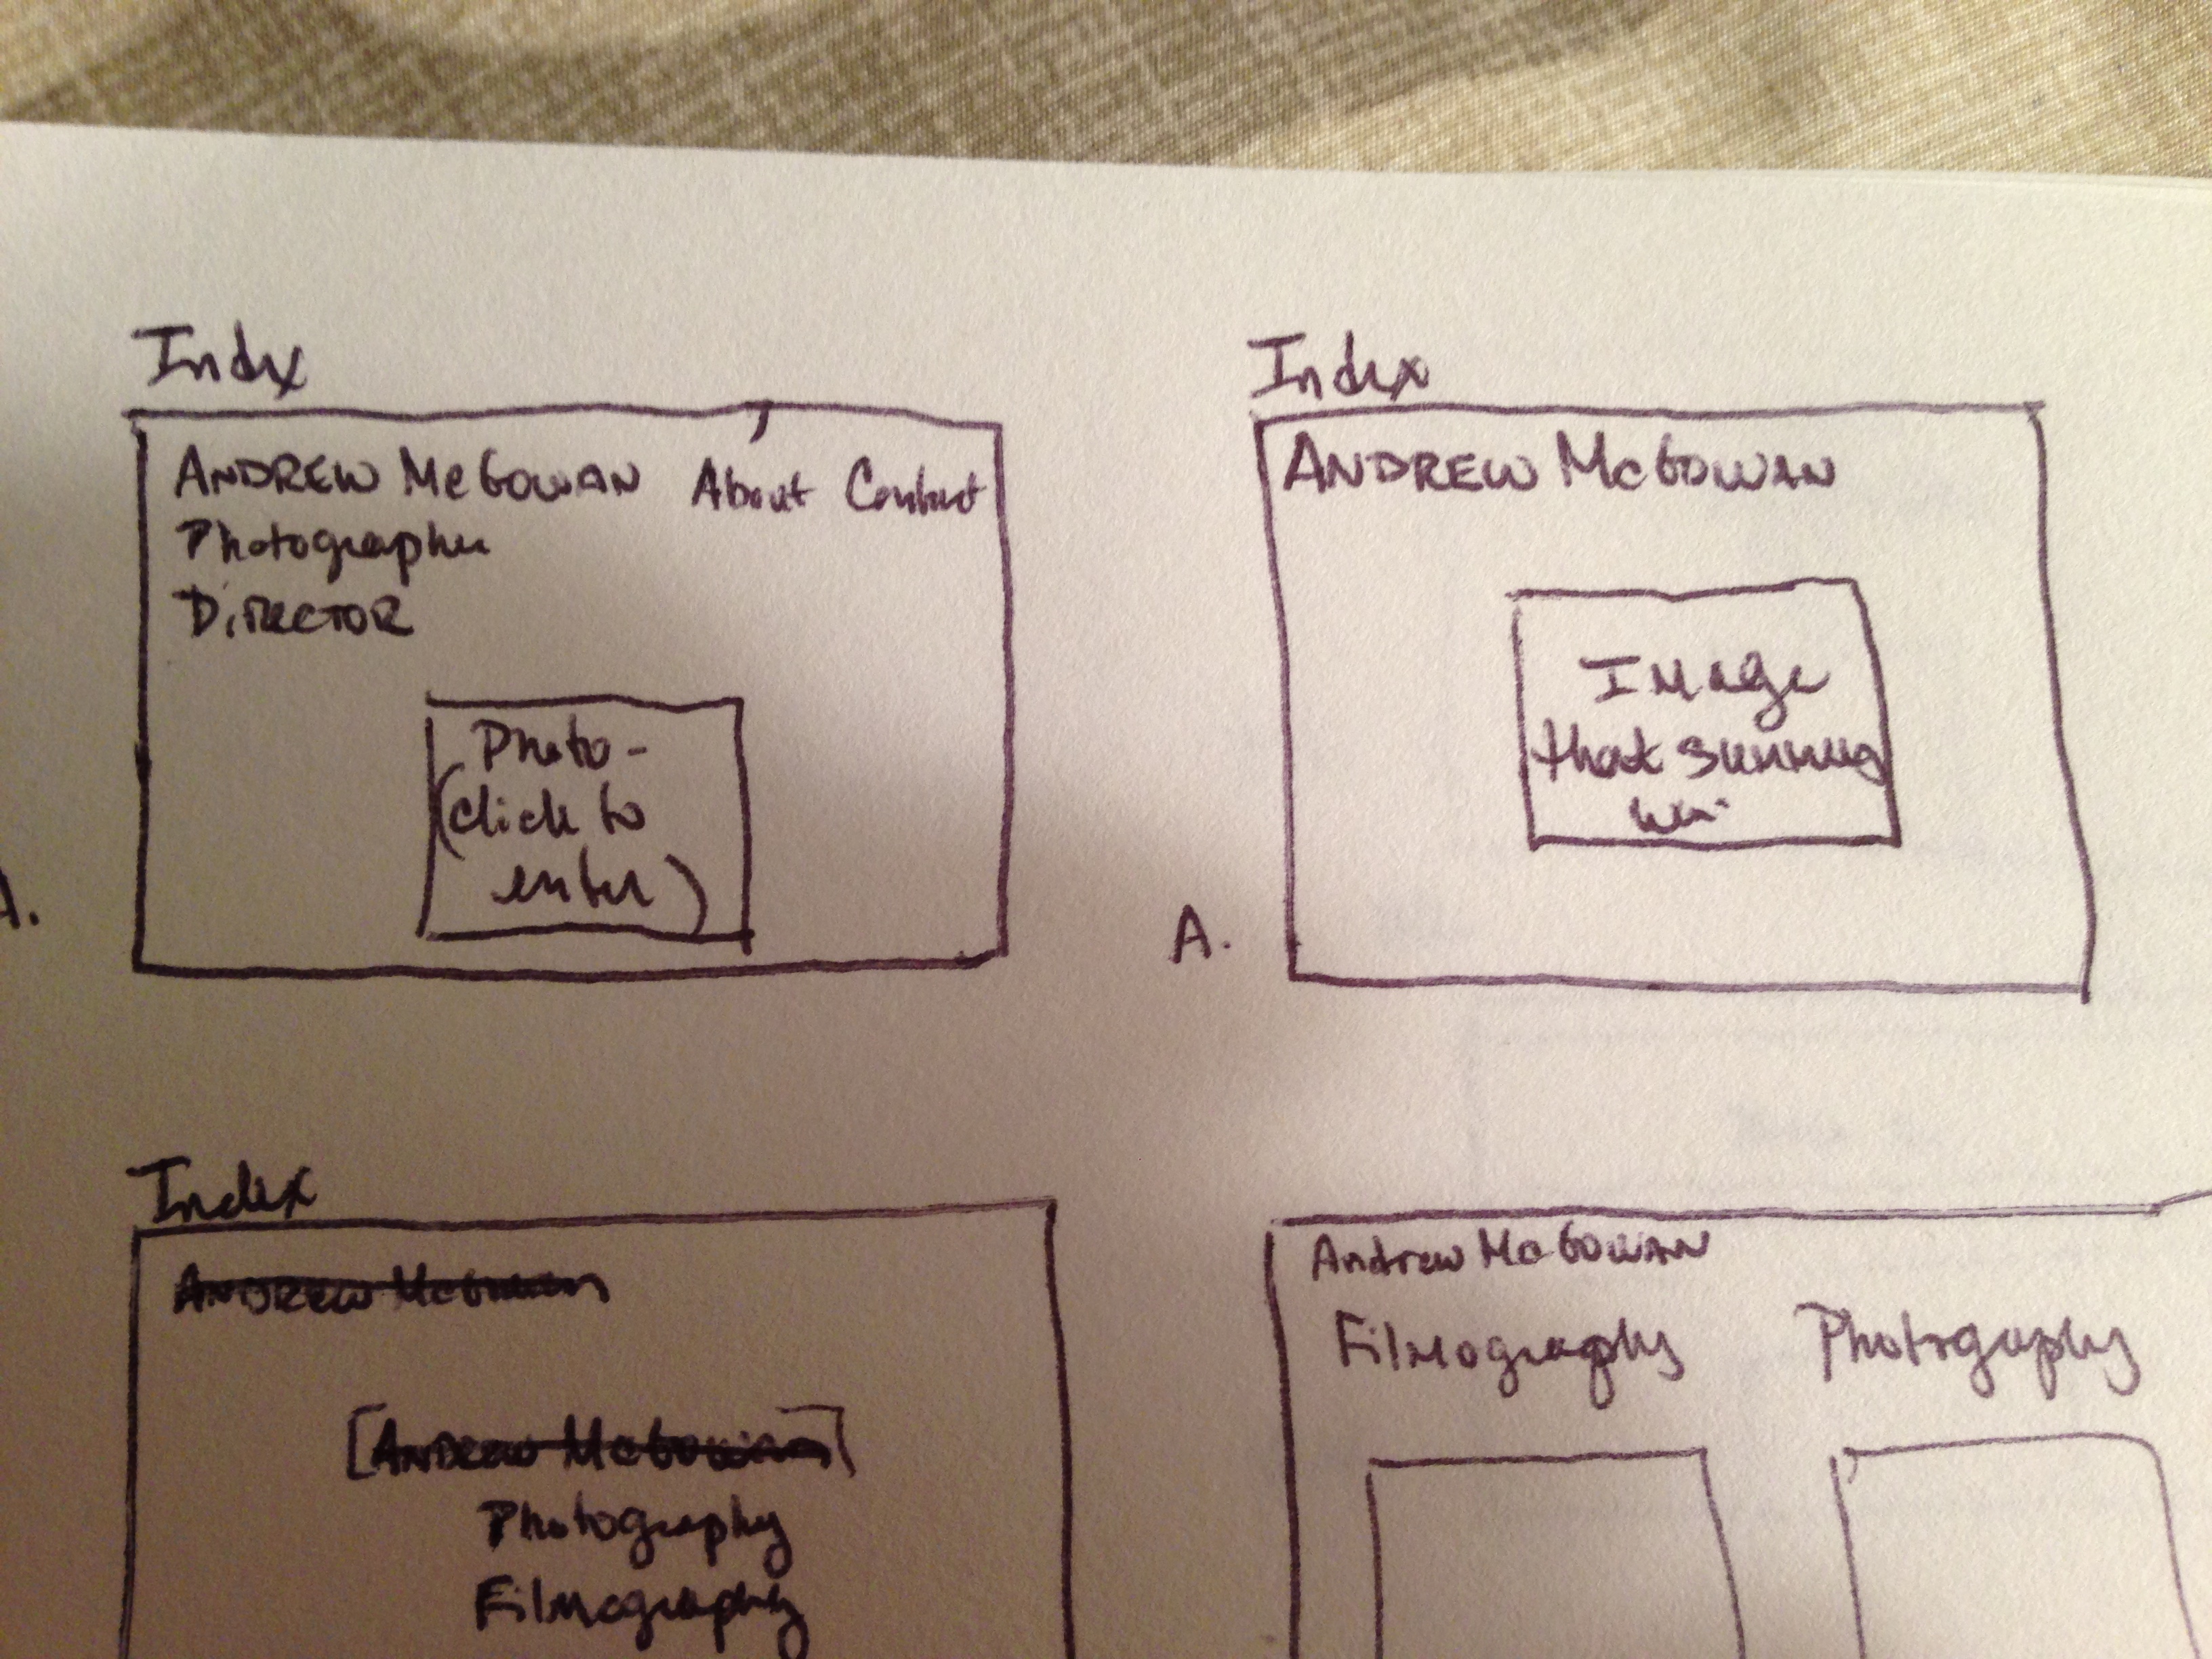 Index
ANDREW McGOWAN About Contact
Photographer
DIRECTOR
Photo-
(click to
enter)
A.
Index
ANDREW McGOWAN
Image
that
A.
Index
ANDREW McGowan
[ANDREW McGowan]
Photography
Filmography
Andrew McGOWAN
Filmography Photography